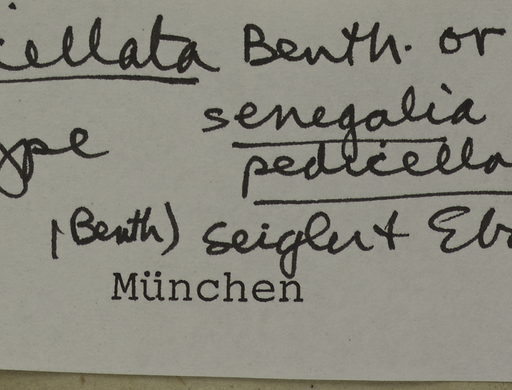 cellata Benth. or
senegalia
ype pedicella
(Benth) Seigler & Eb
München